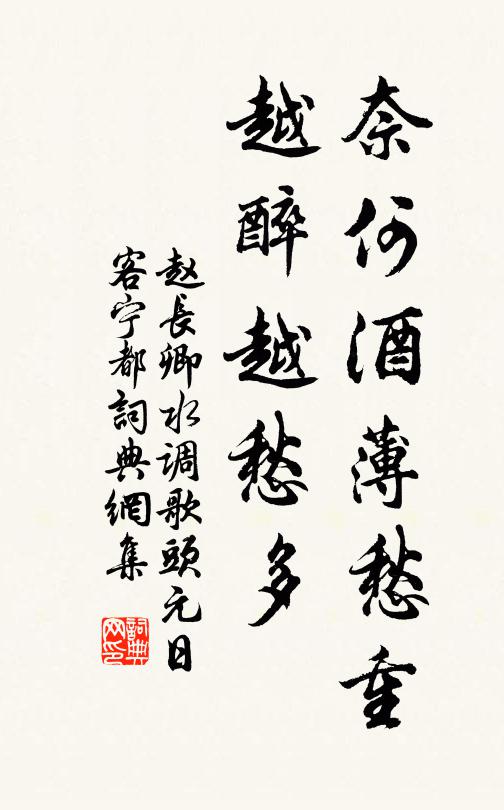 奈何酒薄愁重
越醉越愁多
赵長卿水调歌頭元日
客宁都詞典網集
詞典网印